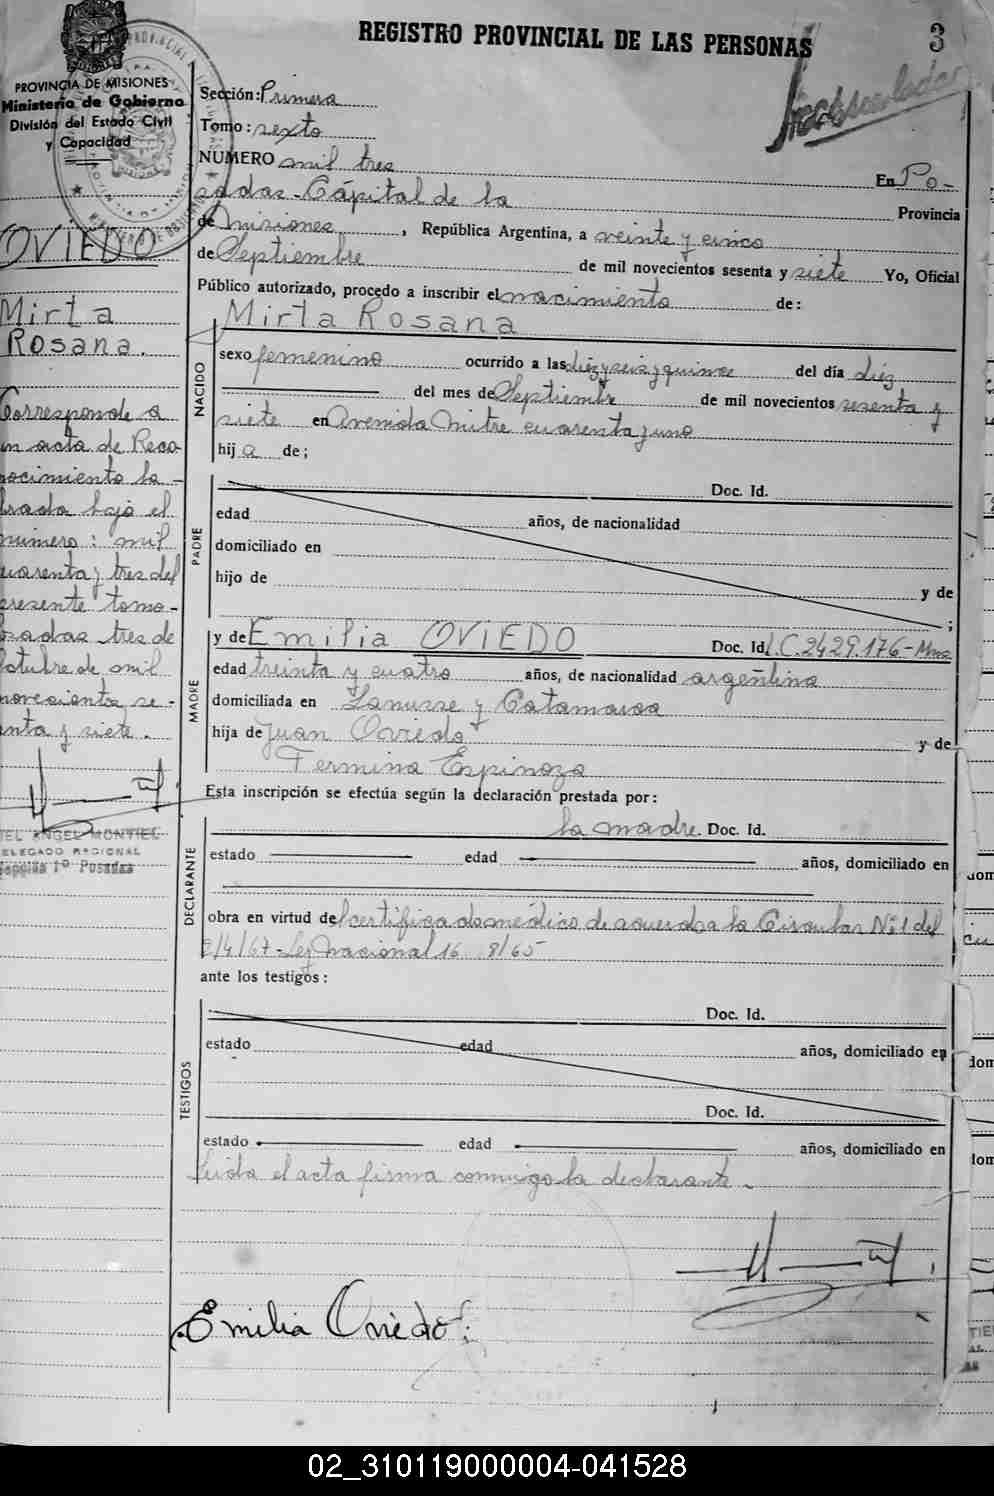 REGISTRO PROVINCIAL DE LAS PERSONAS
3
PROVINCIA DE MISIONES
Ministerio de Gobierno
División del Estado Civil
y Capacidad
Sección: Primera
Tomo: sexto
NUMERO mil tres
En Po-
sadas - Cápital de la Provincia
de Misiones, República Argentina, a veinte y cinco
de Septiembre de mil novecientos sesenta y siete Yo, Oficial
Público autorizado, procedo a inscribir el nacimiento de:
Mirta Rosana
NACIDO
sexo femenino ocurrido a las diez y seis y quince del día diez
del mes de Septiembre de mil novecientos sesenta y
siete en Avenida Mitre cuarenta y uno
hija de;
PADRE
Doc. Id.
edad años, de nacionalidad
domiciliado en
hijo de y de
;
MADRE
y de Emilia OVIEDO Doc. Id. L.C. 2429.176 - Mnes
edad treinta y cuatro años, de nacionalidad argentina
domiciliada en Lanusse y Catamarca
hija de Juan Oviedo y de
Fermina Espinoza
Esta inscripción se efectúa según la declaración prestada por:
DECLARANTE
la madre. Doc. Id.
estado edad años, domiciliado en
obra en virtud del certificado médico de acuerdo a la Circular Nº 1 del
/4/67 - Ley nacional 16 8/65
ante los testigos:
TESTIGOS
Doc. Id.
estado edad años, domiciliado en
Doc. Id.
estado edad años, domiciliado en
Leida el acta firma conmigo la declarante.
Emilia Oviedo
OVIEDO
Mirta
Rosana.
Corresponde a
un acta de Reco-
nocimiento la-
brada bajo el
número: mil
cuarenta y tres del
presente tomo-
Posadas tres de
Octubre de mil
novecientos se-
senta y siete.
ANGEL MONTIEL
DELEGADO REGIONAL
Sección 1º Posadas
02_310119000004-041528